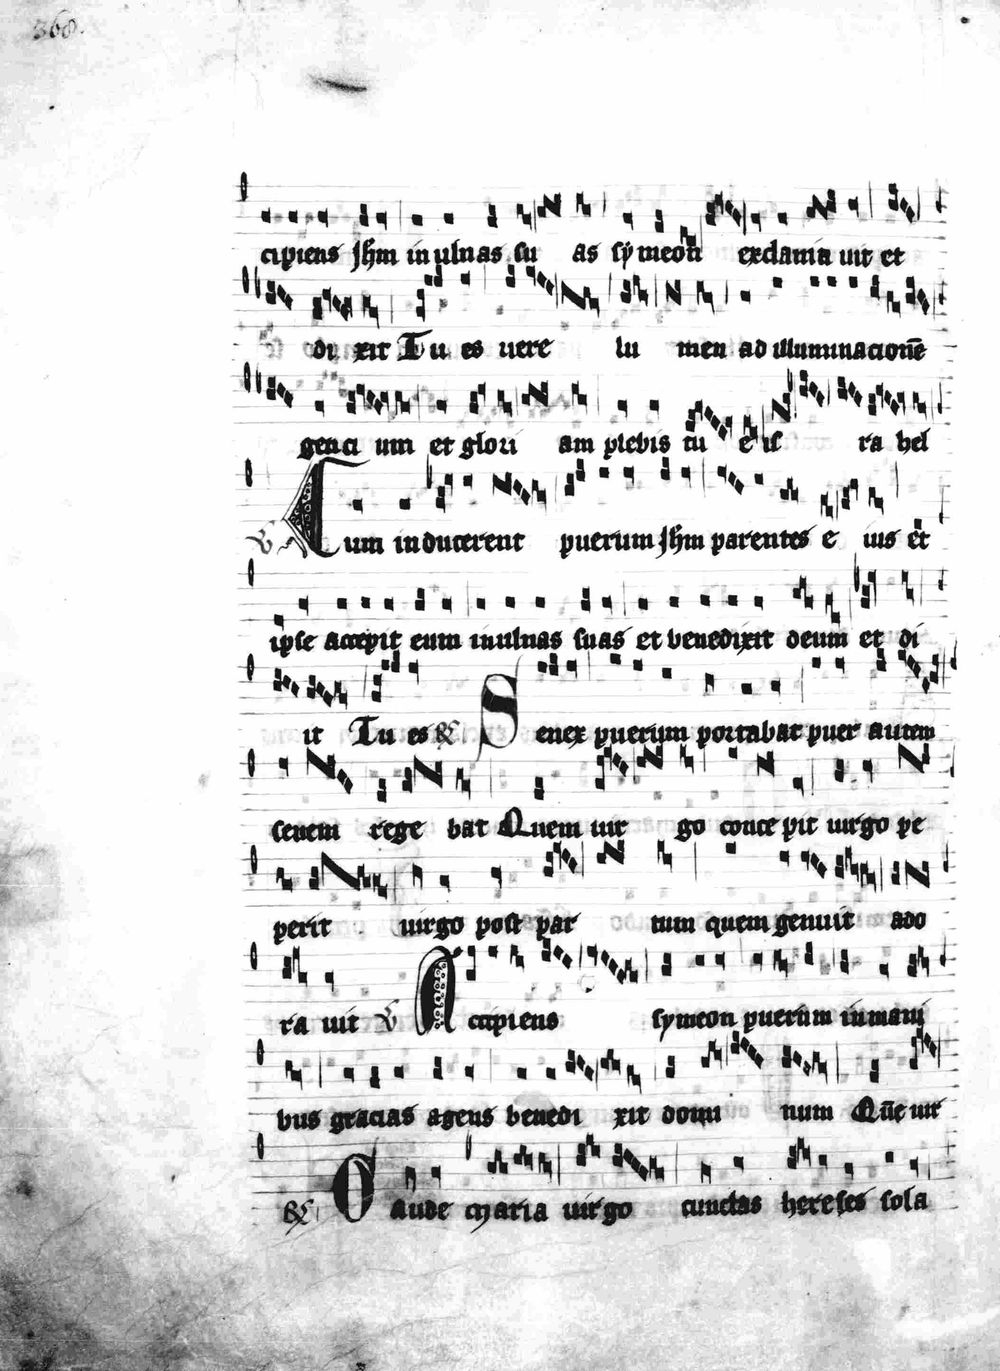 368.
cipiens Jhm in ulnas su as symeon exclama uit et
di xit Tu es uere lu men ad illuminacionē
genci um et glori am plebis tu e is ra hel
Cum inducerent puerum Jhm parentes e ius et
ipse accepit eum in ulnas suas et benedixit deum et di
it Tu es Senex puerum portabat puer autem
senem rege bat Quem uir go conce pit uirgo pe
perit uirgo post par tum quem genuit ado
ra uit Accipiens symeon puerum in mani
bus gracias agens benedi xit domi num Quē uir
Gaude maria uirgo cunctas hereses sola